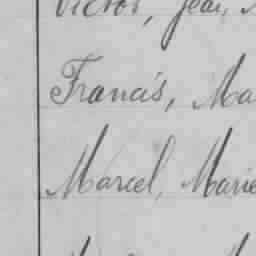 Victor, Jean,
Francis, Ma
Marcel, Marie